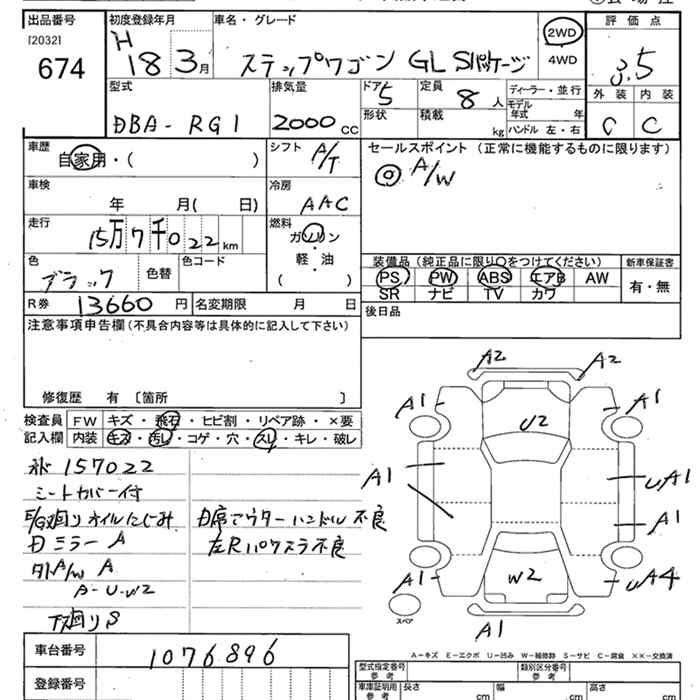 出品番号 初度登録年月 車名・グレード 評価点
[2032]
674 H 18 3月 ステップワゴン GL Sパッケージ 2WD 4WD 3.5
型式 排気量 ドア 定員 ディーラー・並行 外装 内装
DBA-RG1 2000cc 5 8人 モデル年式 年 C C
形状 積載 kg ハンドル 左・右
車歴 シフト セールスポイント (正常に機能するものに限ります)
自家用・( ) A/T ◎ A/W
車検 冷房
年 月( 日) AAC
走行 燃料
15万7千022km ガソリン
軽・油
( )
色 色替 色コード 装備品(純正品に限り○をつけてください) 新車保証書
ブラック PS PW ABS エアB AW 有・無
SR ナビ TV カワ
R券 13660円 名変期限 月 日 後日品
注意事項申告欄(不具合内容等は具体的に記入して下さい)
修復歴 有 〔箇所 〕
検査員 FW キズ・飛石・ヒビ割・リペア跡・×要
記入欄 内装 キズ・汚レ・コゲ・穴・スレ・キレ・破レ
157022
シートカバー付
E/G廻りオイルにじみ
Dミラー A
外A/W A
A-U-W2
下廻りS
D席アウターハンドル不良
左Rパワスラ不良
A2 A2
A1 A1
U2
A1 UA1
A1
A1 W2 UA4
スペア
A1
A-キズ E-エクボ U-凹み W-補修跡 S-サビ C-腐食 ××-交換済
車台番号 1076896
登録番号
型式指定番号 参考 類別区分番号 参考
車庫証明用 参考 長さ cm 幅 cm 高さ cm